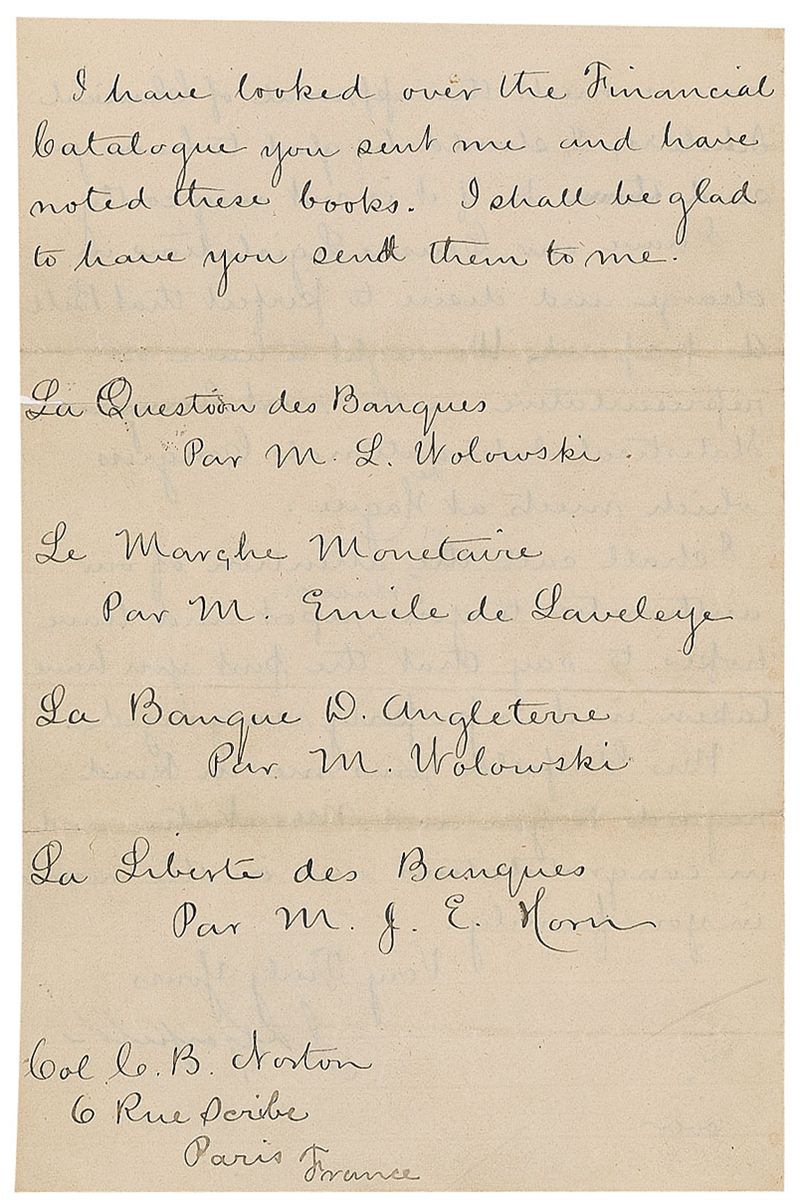 I have looked over the Financial
Catalogue you sent me and have
noted these books. I shall be glad
to have you send them to me.
La Question des Banques
Par M. L. Wolowski.
Le Marche Monetaire
Par M. Emile de Laveleye
La Banque D. Angleterre
Par M. Wolowski
La Liberte des Banques
Par M. J. E. Horn
Col C. B. Norton
6 Rue Scribe
Paris France